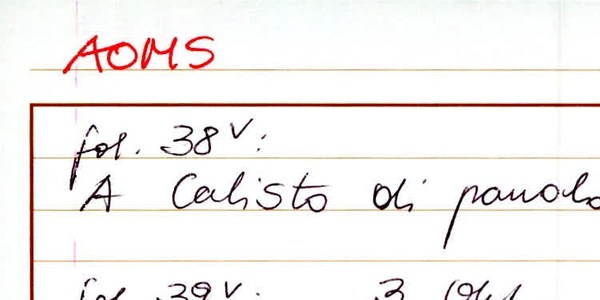 AOMS
fol. 38v:
A Calisto di
fol. 39v: 3